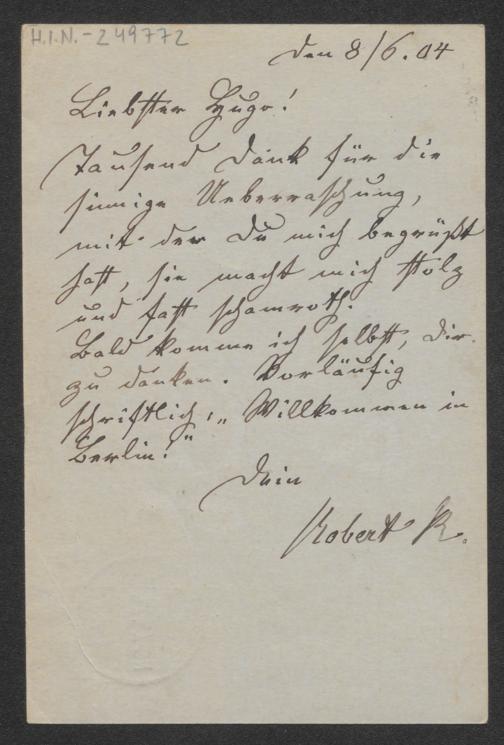 H.I.N.-249772
Den 8/6.04
Liebster Hugo!
Tausend Dank für die
sinnige Ueberraschung,
mit der Du mich begrüßt
hast, sie macht mich stolz
und fast schamroth.
Bald komme ich selbst, Dir
zu danken. Vorläufig
schriftlich: „Willkommen in
Berlin!"
Dein
Robert R.